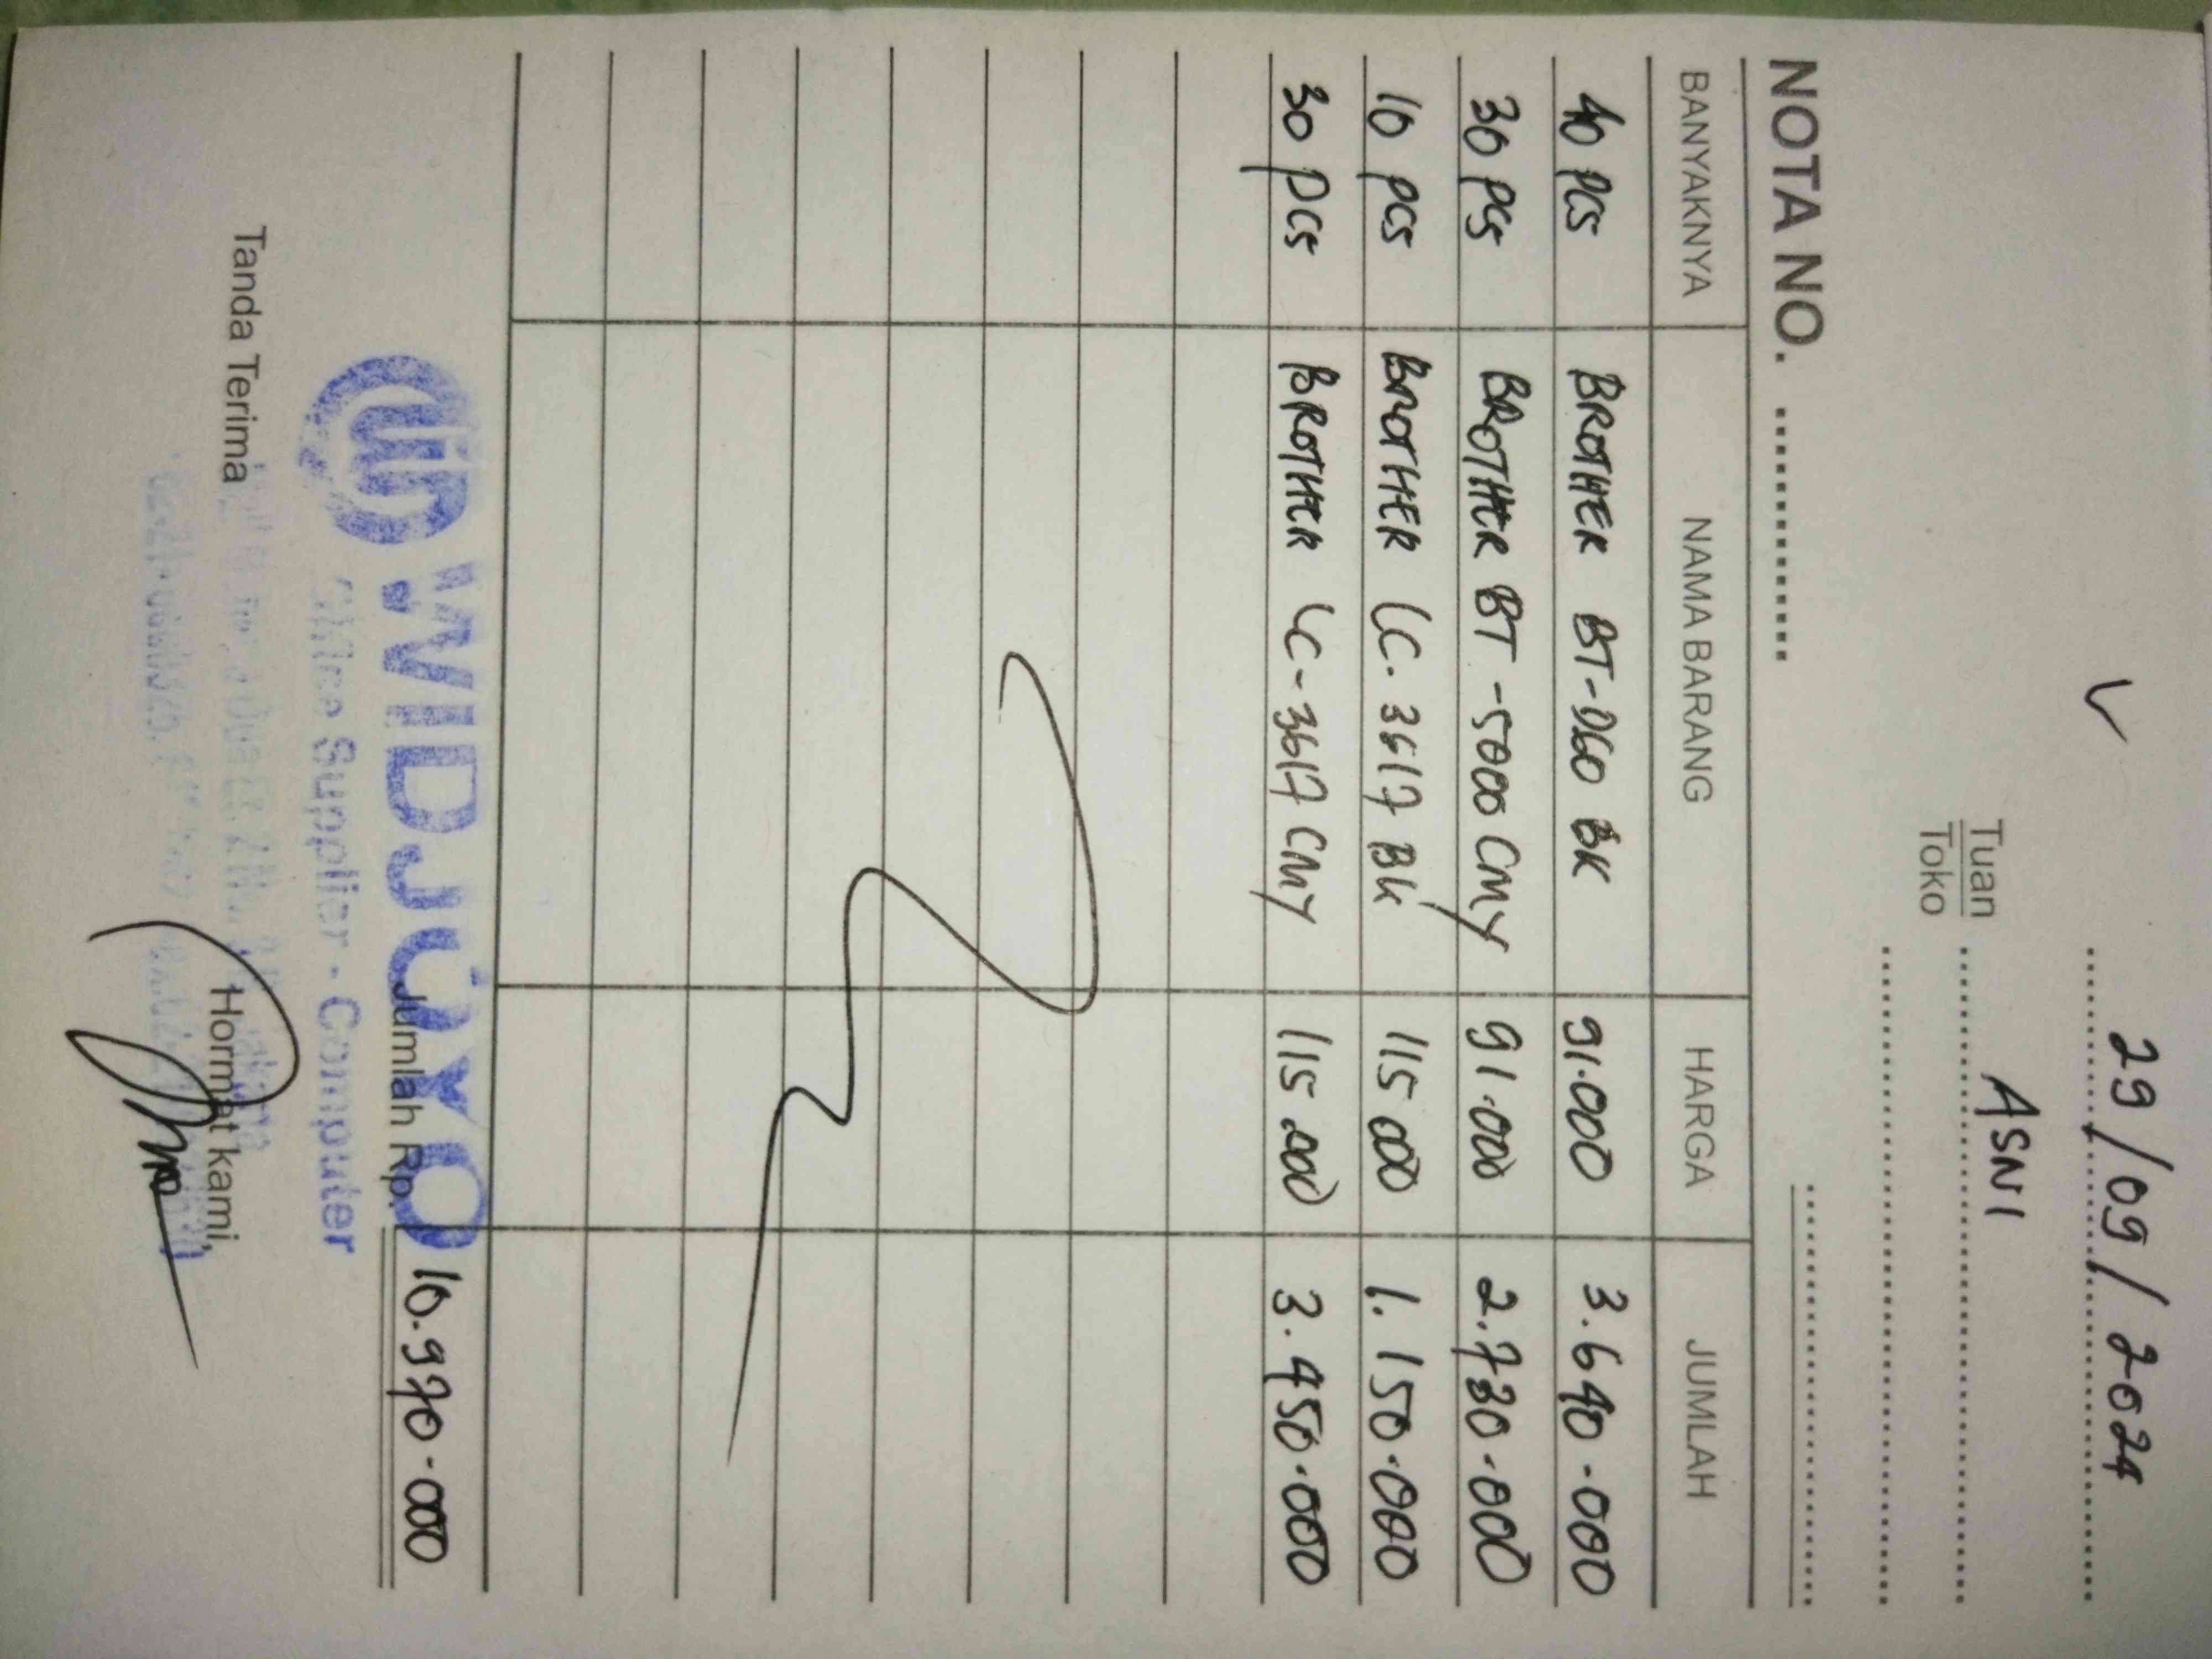 29/09/2024
Tuan ASNI
Toko
NOTA NO. ................
BANYAKNYA NAMA BARANG HARGA JUMLAH
40 PCS BROTHER BT-D60 BK 91.000 3.640.000
30 PCS BROTHER BT-5000 CMY 91.000 2.730.000
10 PCS BROTHER LC.3617 BK 115.000 1.150.000
30 PCS BROTHER LC-3617 CMY 115.000 3.450.000
Jumlah Rp. 10.970.000
WIDJOYO
Office Supplier - Computer
Tanda Terima Hormat kami,